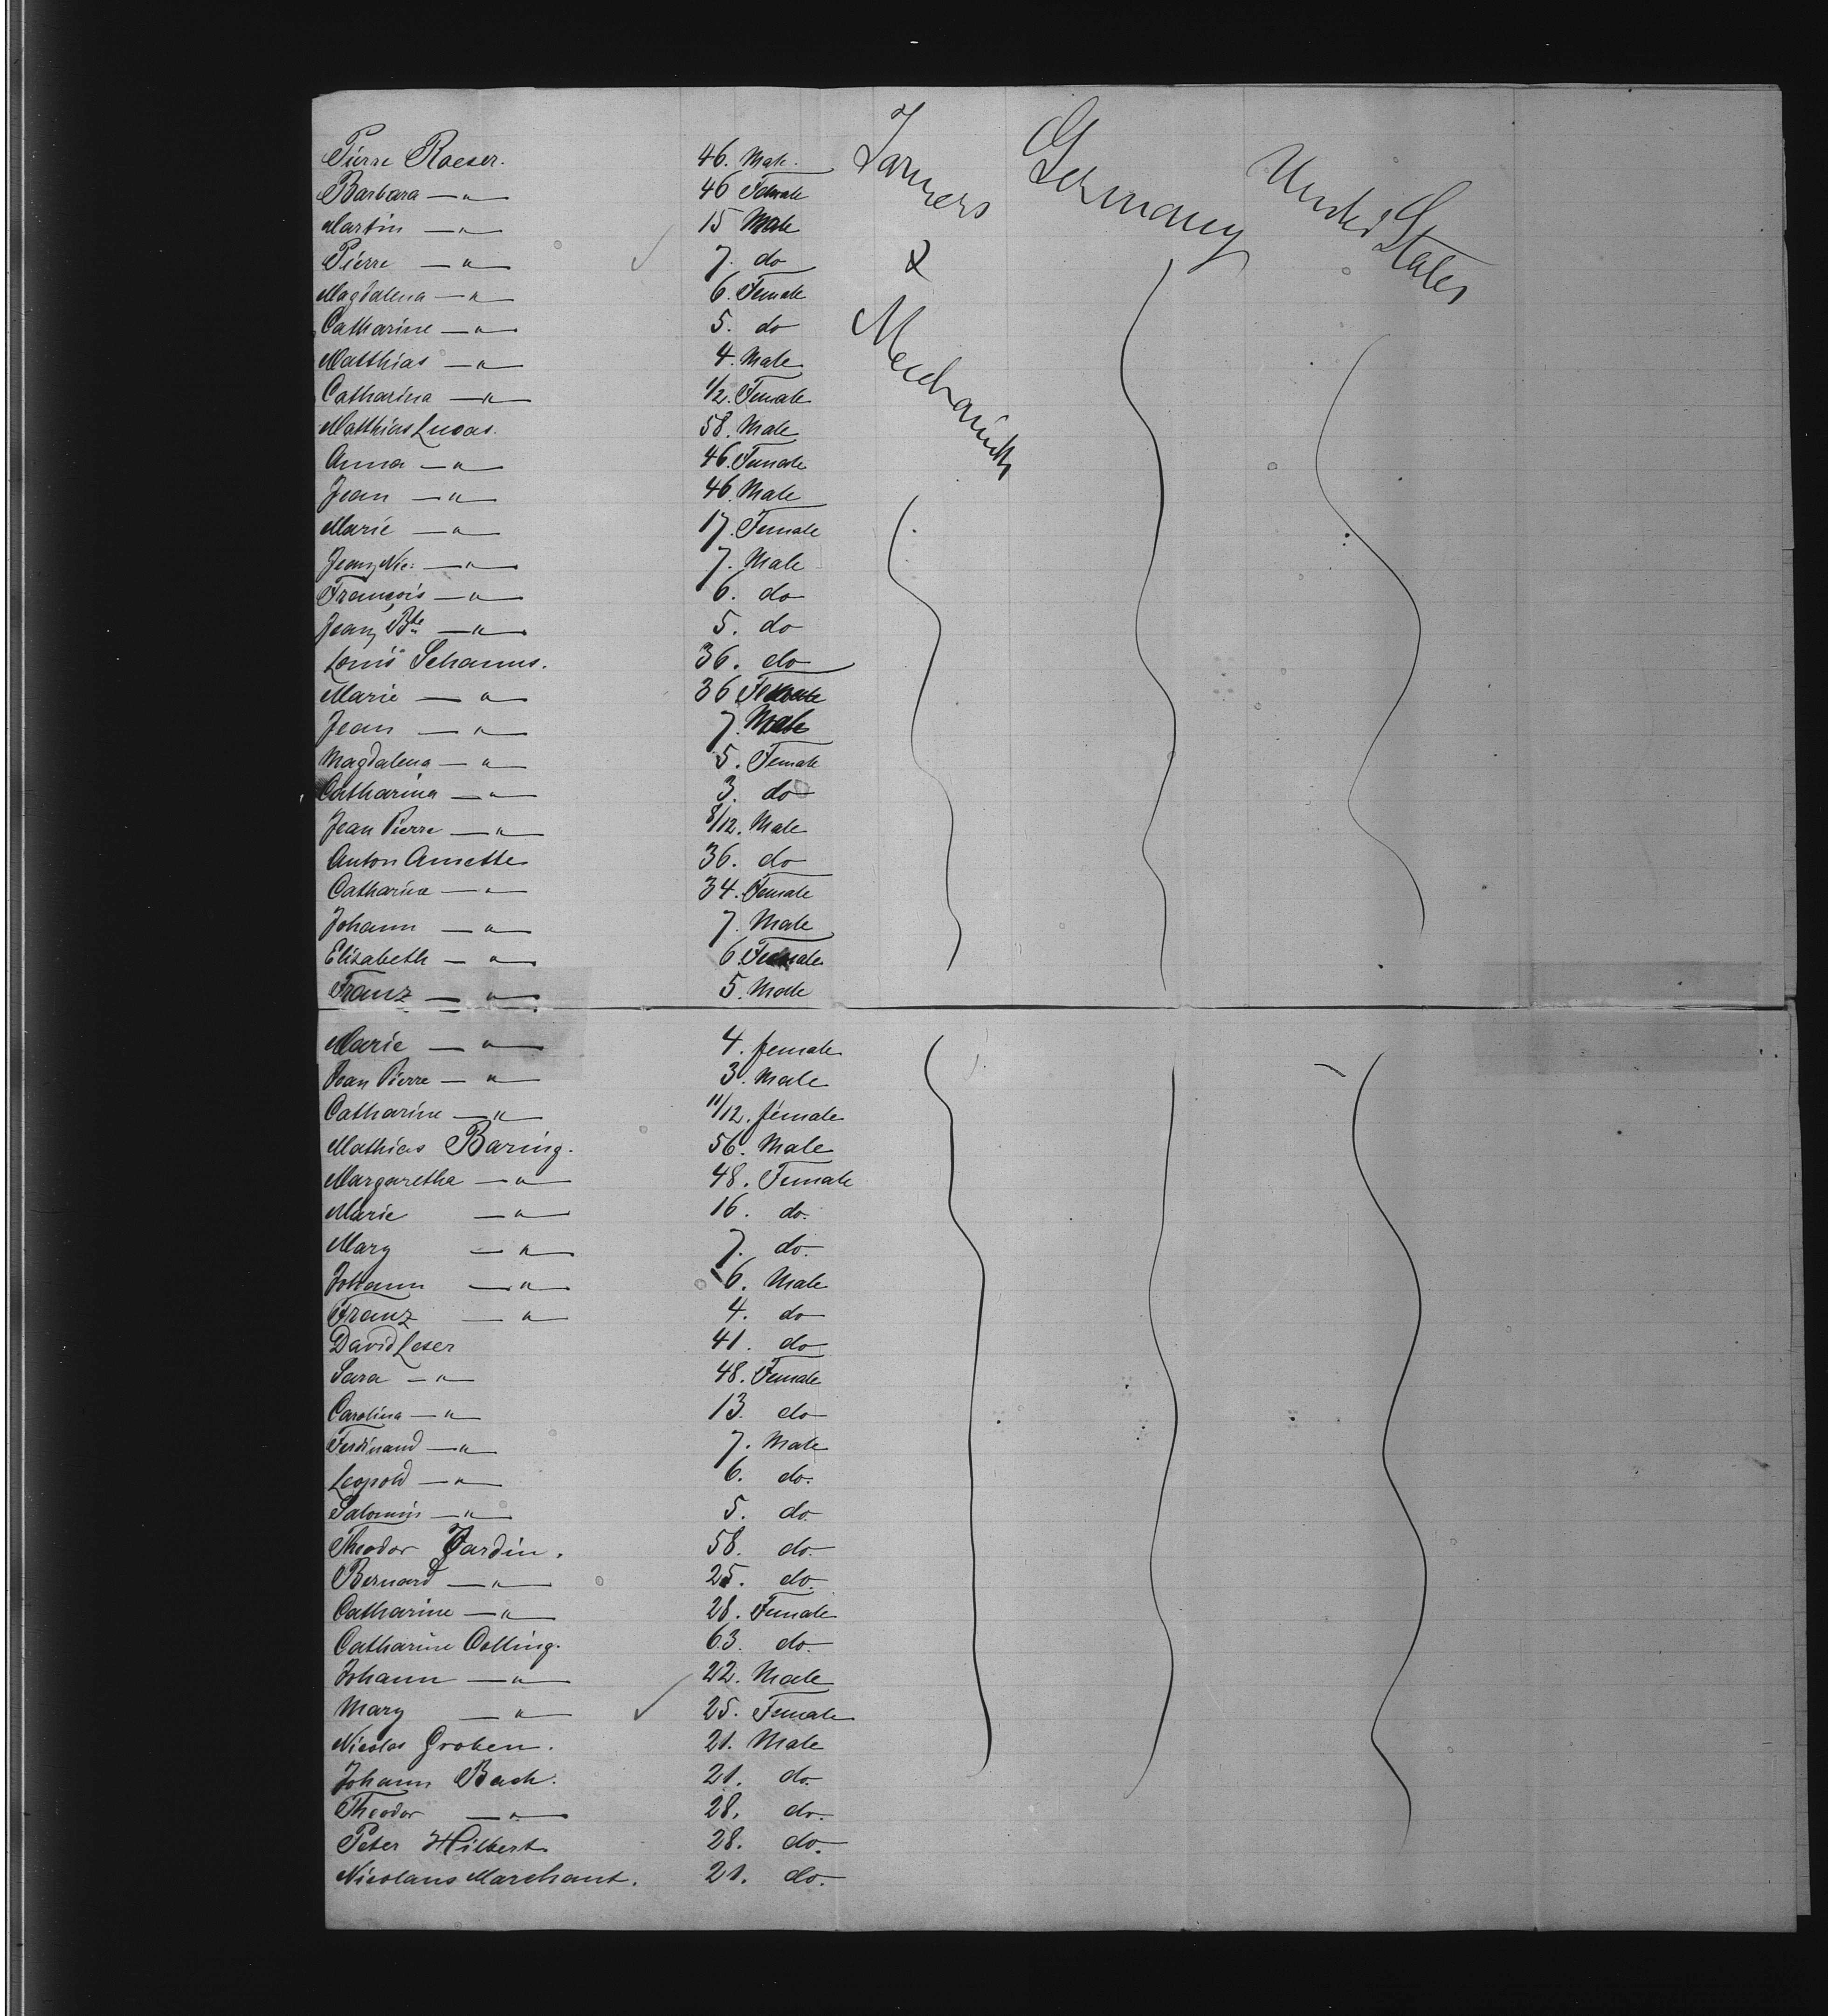 Pierre Roeser. 46. Male. Farmers Germany United States
Barbara —"— 46 Female
Martin —"— 15 Male
Pierre —"— 7. do &
Magdalena —"— 6. Female
Catharine —"— 5. do Mechanicks
Matthias —"— 4. Male
Catharina —"— 1/2. Female
Matthias Lucas. 58. Male
Anna —"— 46. Female
Jean —"— 46. Male
Marie —"— 17. Female
Jean Nic: —"— 7. Male
François —"— 6. do
Jean Bte —"— 5. do
Louis Schanus. 36. do
Marie —"— 36 Female
Jean —"— 7. Male
Magdalena —"— 5. Female
Catharina —"— 3. do
Jean Pierre —"— 8/12. Male
Anton Amette 36. do
Catharine —"— 34. Female
Johann —"— 7. Male
Elizabeth —"— 6. Female
Franz —"— 5. Male
Marie —"— 4. female
Jean Pierre —"— 3. Male
Catharine —"— 11/12. female
Mathias Baring. 56. Male
Margaretha —"— 48. Female
Marie —"— 16. do.
Mary —"— 7. do.
Johann —"— 6. Male
Franz —"— 4. do
David Leser 41. do
Sara —"— 48. Female
Carolina —"— 13. do
Ferdinand —"— 7. Male
Leopold —"— 6. do.
—"— 5. do.
Theodor Jardin. 58. do.
Bernard —"— 25. do.
Catharine —"— 28. Female
Catharine Colling. 63. do.
Johann —"— 22. Male
Mary —"— 25. Female
Nicolas Groben. 21. Male
Johann Bach. 21. do.
Theodor —"— 28. do.
Peter Hilbert 28. do.
Nicolaus Marchant. 21. do.